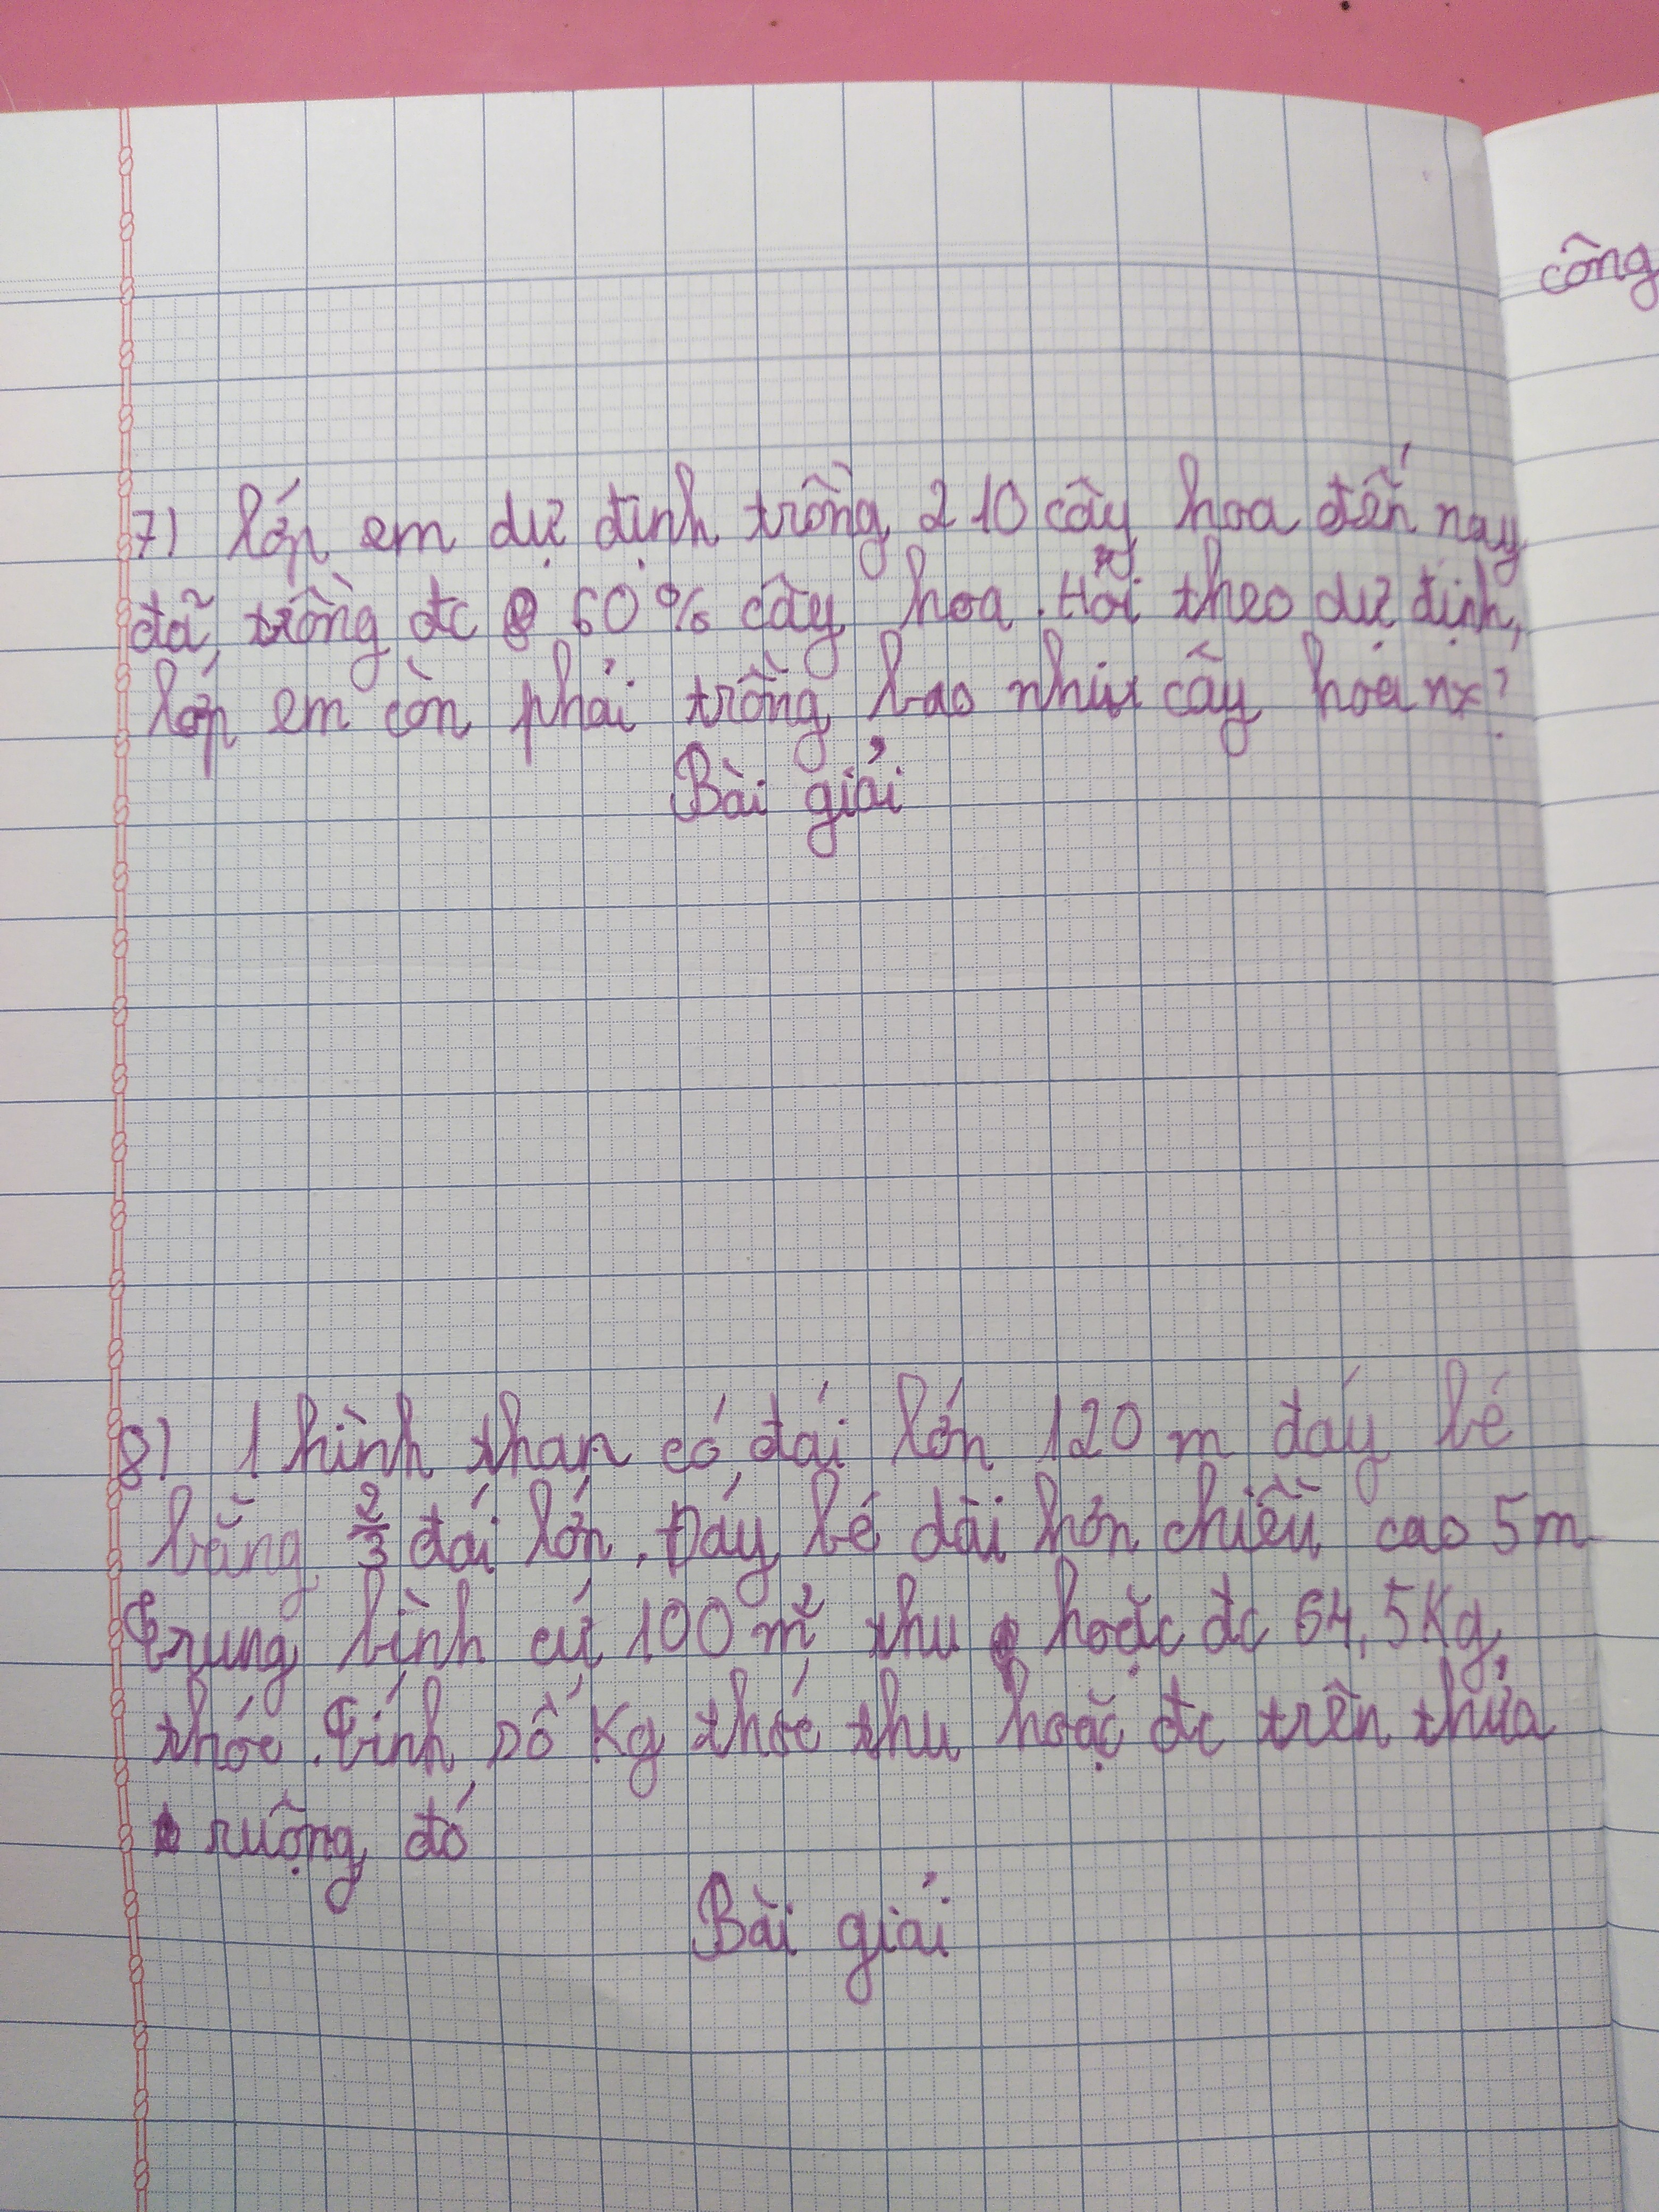 công
7) lớp em dự định trồng 210 cây hoa đến nay
đã trồng đc 60% cây hoa. Hỏi theo dự định,
lớp em còn phải trồng bao nhiu cây hoa nx?
Bài giải
8) 1 hình than có đái lớn 120 m đáy bé
bằng 2/3 đái lớn. Đáy bé dài hơn chiều cao 5m
Trung bình cứ 100 m² thu hoặc đc 64,5 Kg
thóc. Tính số Kg thóc thu hoặc đc trên thửa
ruộng đó
Bài giải